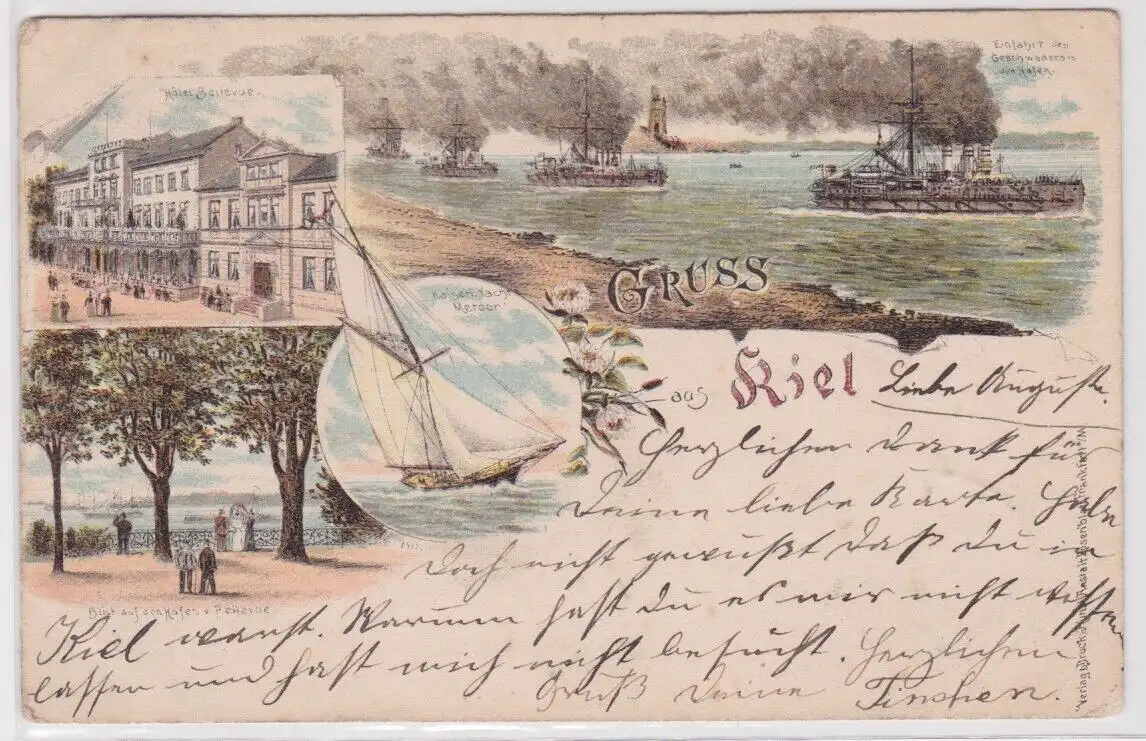 Hôtel Bellevue.
Einfahrt des
Geschwaders in
den Hafen.
Kaiserl. Yacht
Meteor
GRUSS
aus Kiel
Blick auf den Hafen v. Bellevue
Liebe Auguste.
Herzlichen Dank für
Deine liebe Karte. Habe
doch nicht gewußt daß du in
Kiel warst. Warum hast du es mir nicht wissen
lassen und hast mich nicht besucht. Herzlichen
Gruß Deine Tinchen.
Verlag &amp; Druck Kunstanstalt Rosenblatt Frankfurt